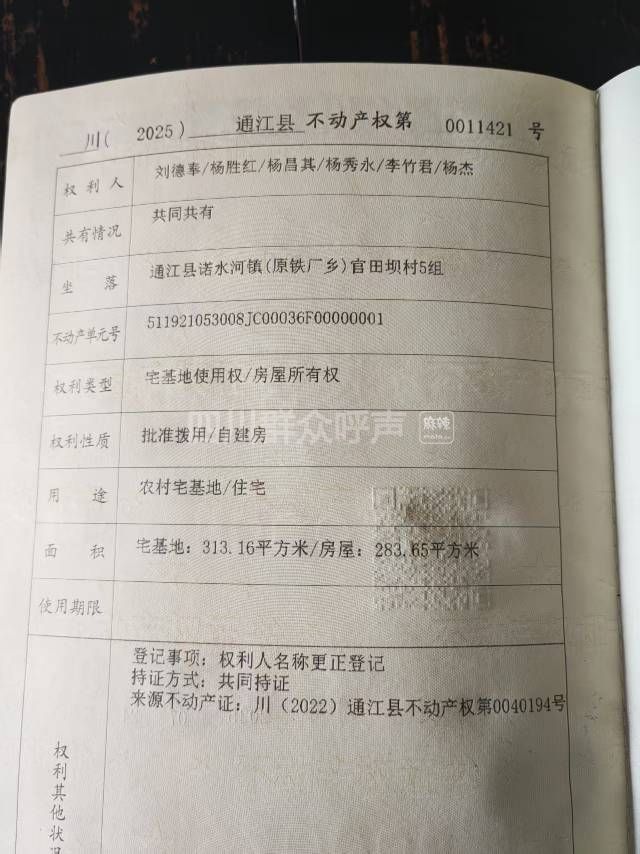 川( 2025) 通江县 不动产权第 0011421 号
权利人 刘德奉/杨胜红/杨昌其/杨秀永/李竹君/杨杰
共有情况 共同共有
坐落 通江县诺水河镇(原铁厂乡)官田坝村5组
不动产单元号 511921053008JC00036F00000001
权利类型 宅基地使用权/房屋所有权
权利性质 批准拨用/自建房
用途 农村宅基地/住宅
面积 宅基地：313.16平方米/房屋：283.65平方米
使用期限
登记事项：权利人名称更正登记
持证方式：共同持证
来源不动产证：川（2022）通江县不动产权第0040194号
权利其他状况
群众呼声 麻辣